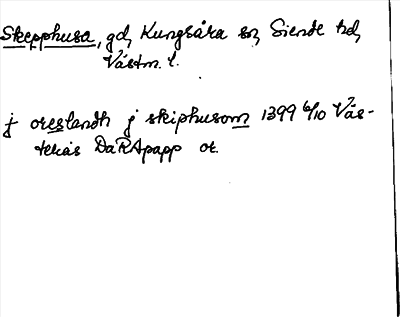 Skepphusa, gd, Kungsåra sn, Siende hd,
Västm. l.
j oreslandh j skiphusom 1399 6/10 Väs-
terås DaRApapp or.